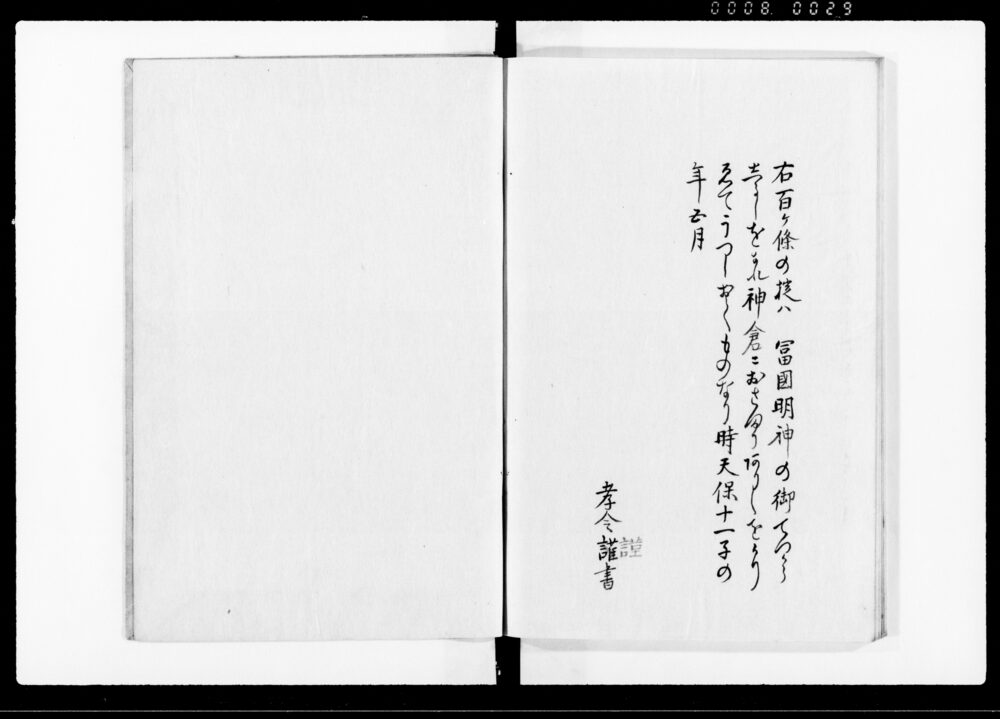 0008 0029
右百ヶ條の掟ハ 冨國明神の御てつから
をしるを神倉ニおさめありしをとり
てうつしおくものなり時天保十一子の
年五月
孝令謹書
謹